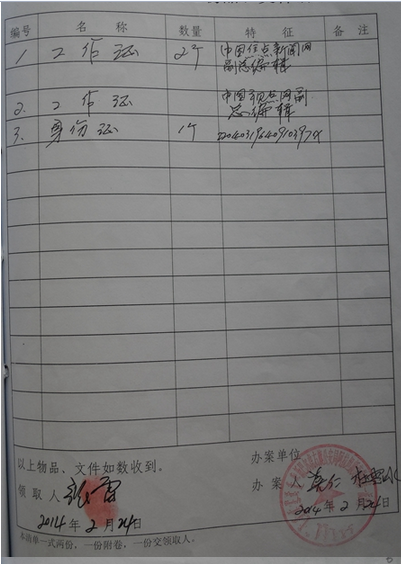 编号 名称 数量 特征 备注
1 工作证 2个 中国焦点新闻网
副总编辑
2. 工作证 中国观点网副
总编辑
3. 身份证 1个
以上物品、文件如数收到。
办案单位
领取人
办案人
2014年2月24日
2014年2月24日
本清单一式两份，一份附卷，一份交领取人。